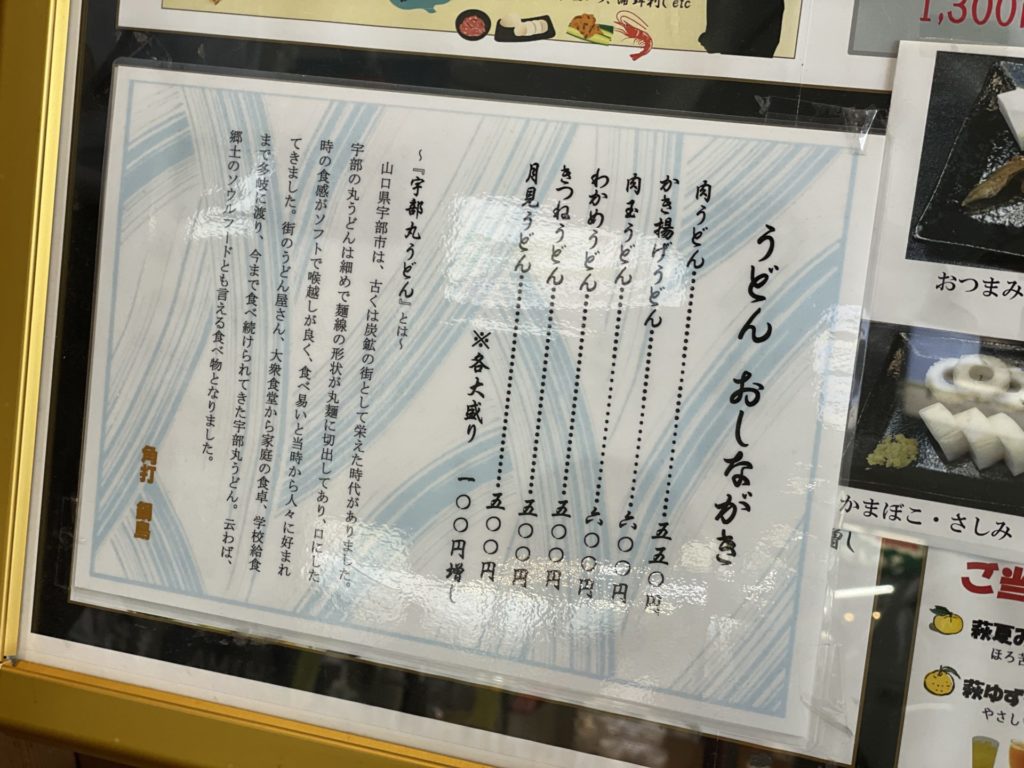 1,300
うどん おしながき
肉うどん…………五五〇円
かき揚げうどん…………六〇〇円
肉玉うどん…………六〇〇円
わかめうどん…………五〇〇円
きつねうどん…………五〇〇円
月見うどん…………五〇〇円
※各大盛り 一〇〇円増し
～『宇部丸うどん』とは～
山口県宇部市は、古くは炭鉱の街として栄えた時代がありました。
宇部の丸うどんは細めで麺線の形状が丸麺に切出してあり、口にした
時の食感がソフトで喉越しが良く、食べ易いと当時から人々に好まれ
てきました。街のうどん屋さん、大衆食堂から家庭の食卓、学校給食
まで多岐に渡り、今まで食べ続けられてきた宇部丸うどん。云わば、
郷土のソウルフードとも言える食べ物となりました。
角打
おつまみ
かまぼこ・さしみ
ご当
萩夏み
ほろ苦
萩ゆず
やさし